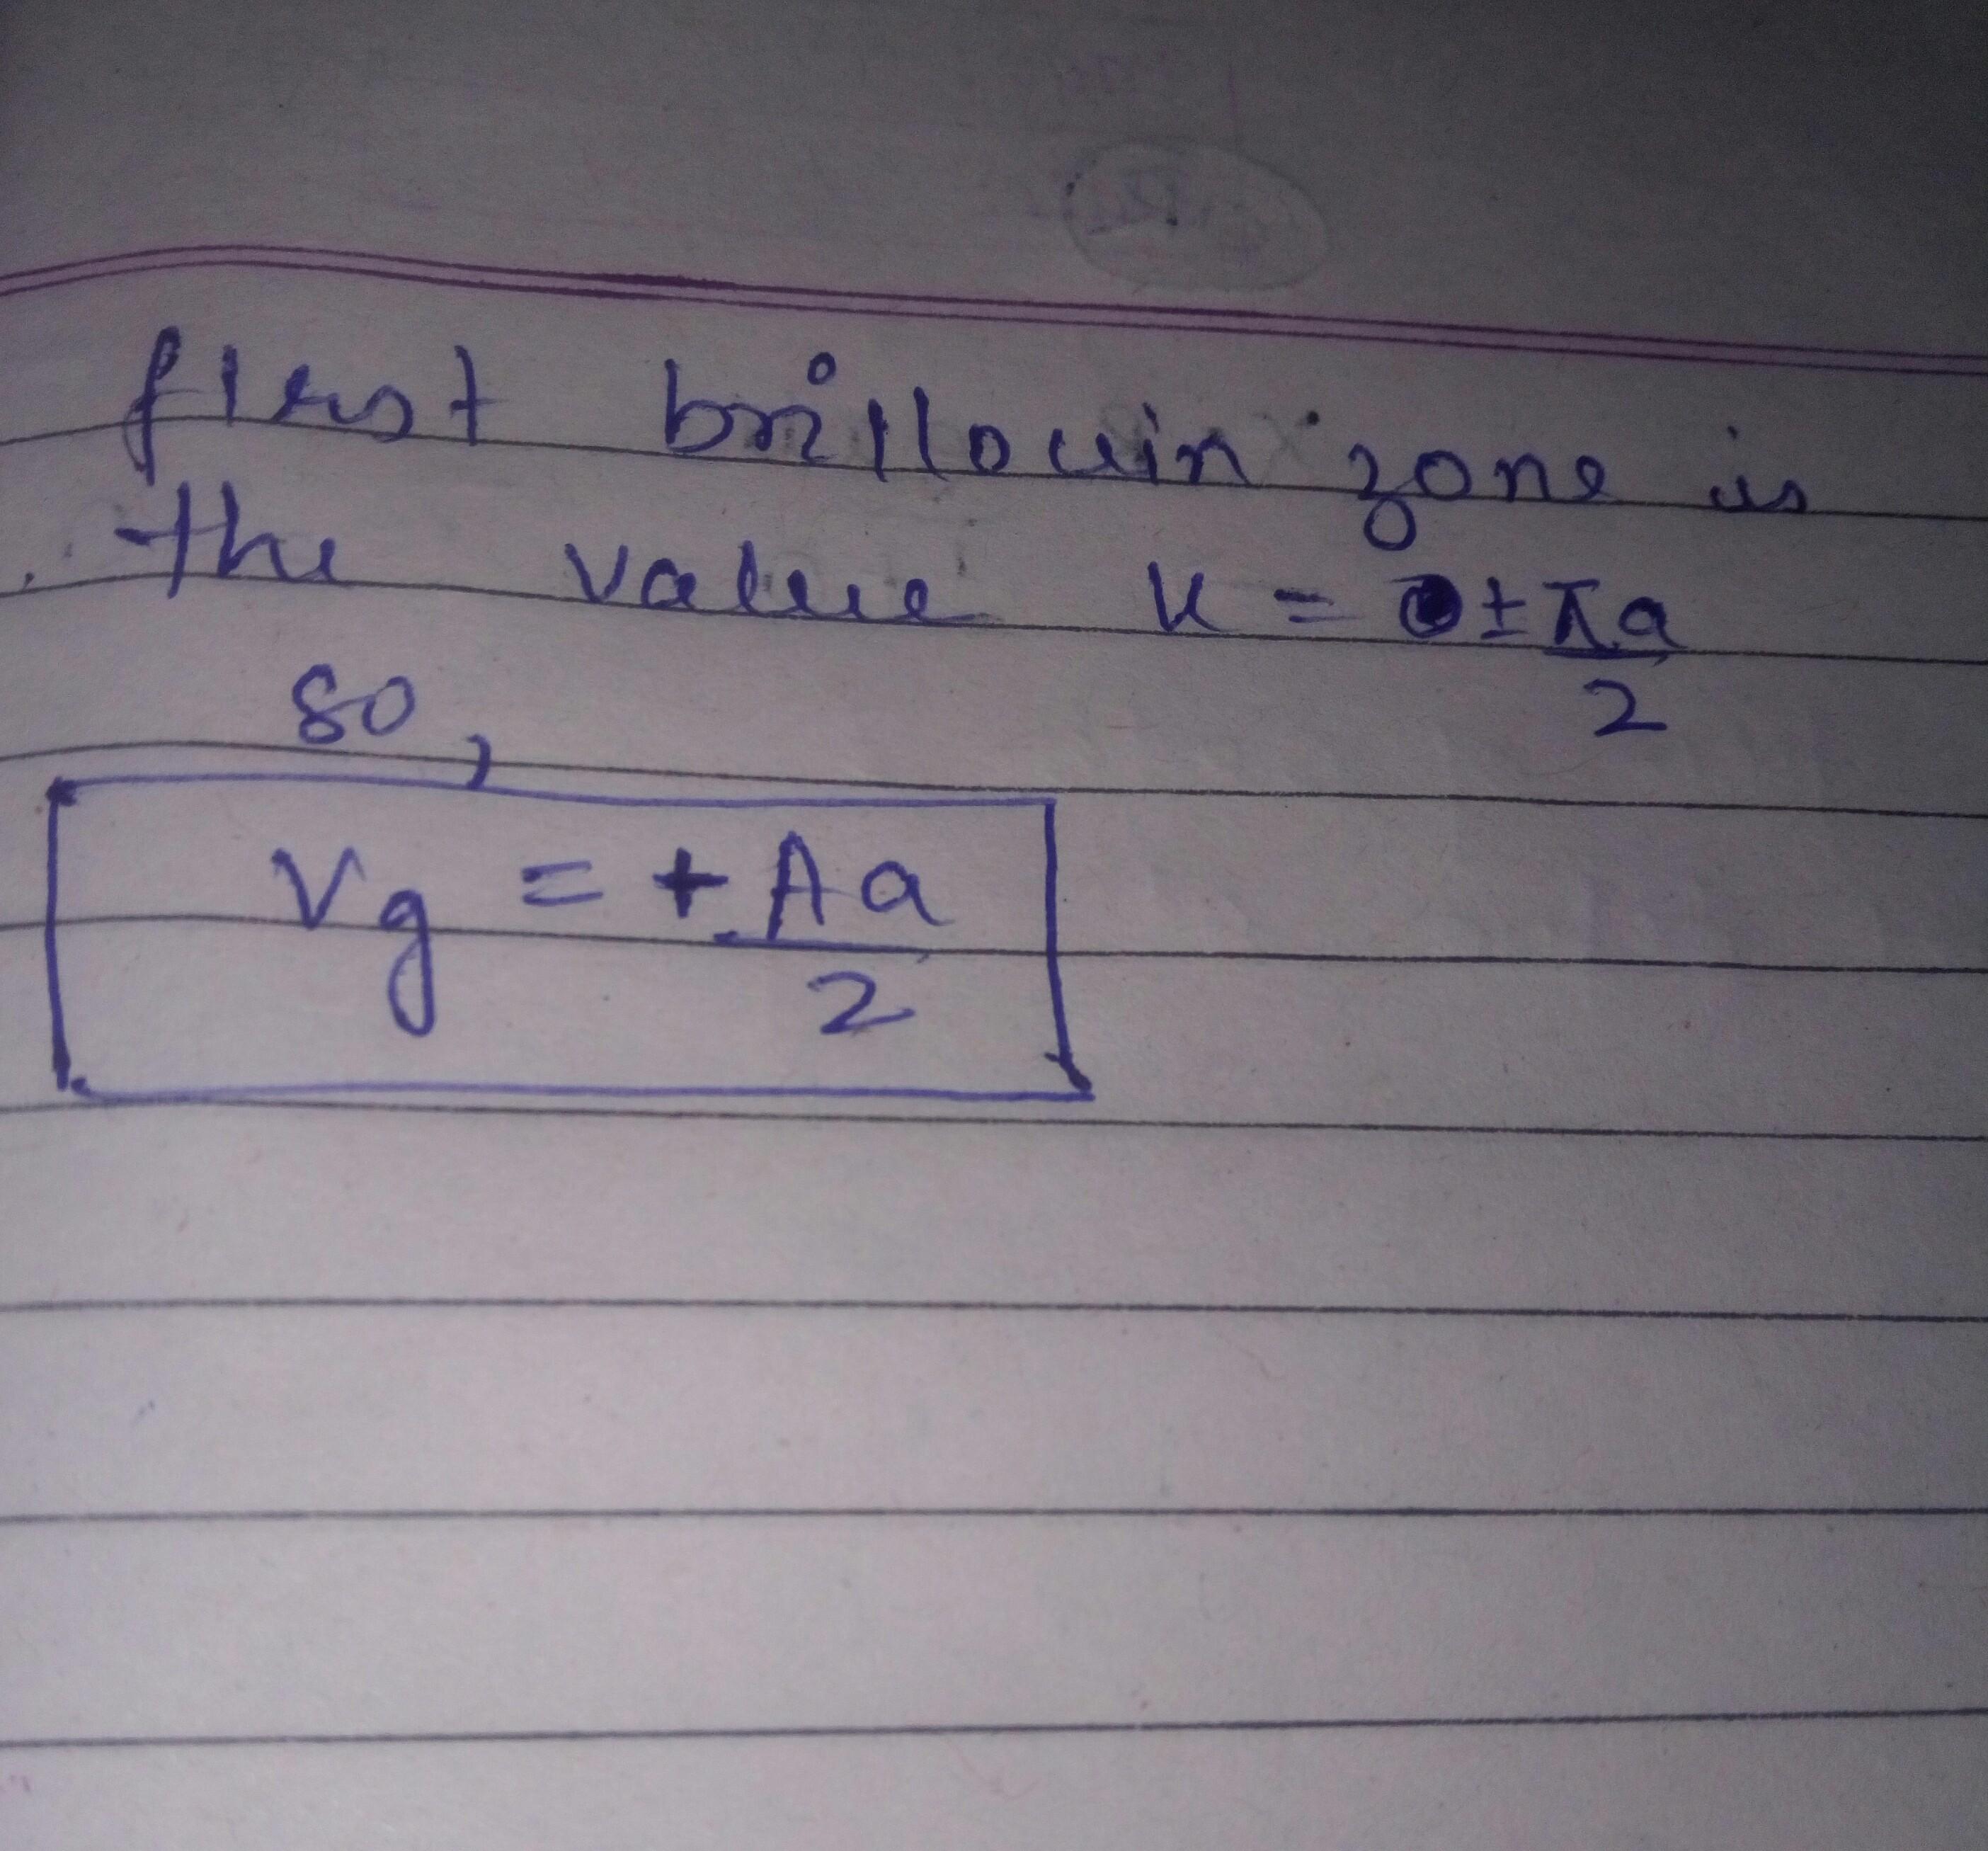 first brillouin zone is
the value k = ± πa/2
so,
Vg = + Aa/2